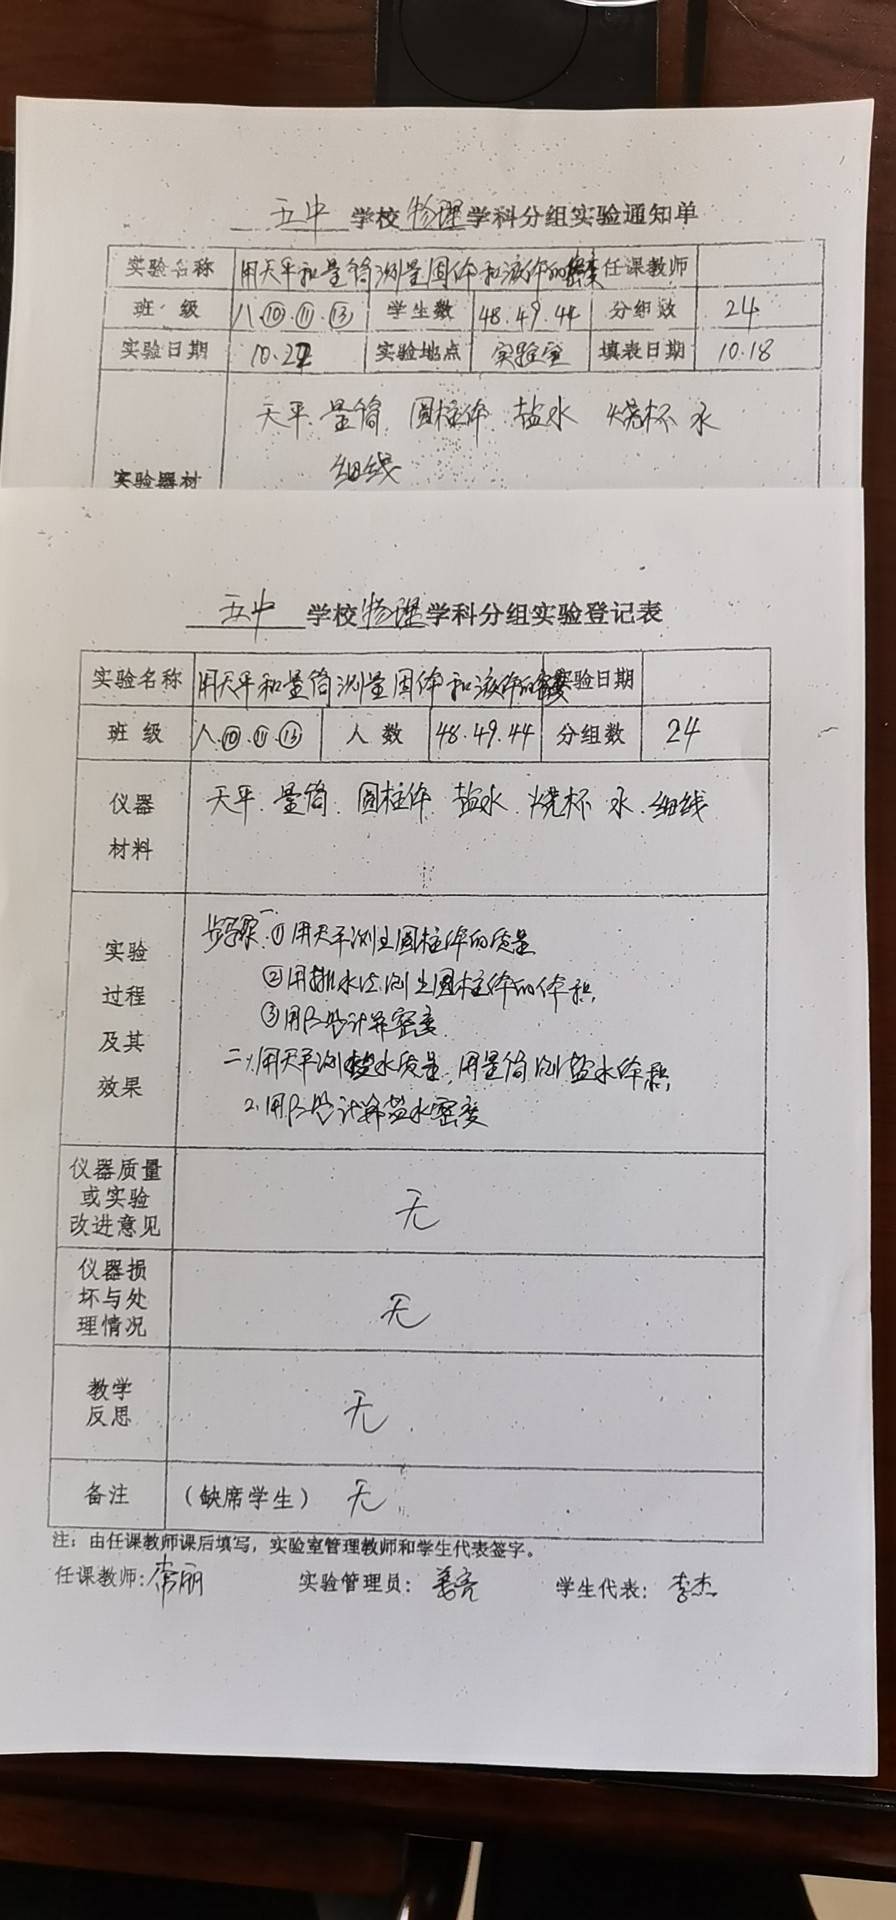 五中 学校 物理 学科分组实验通知单
实验名称 用天平和量筒测量固体和液体的密度 任课教师
班 级 八.⑩.⑪.⑬ 学生数 48.49.44 分组数 24
实验日期 10.22 实验地点 实验室 填表日期 10.18
天平.量筒.圆柱体.盐水 烧杯 水
细线
实验器材
五中 学校 物理 学科分组实验登记表
实验名称 用天平和量筒测量固体和液体的密度 实验日期
班 级 八.⑩.⑪.⑬ 人 数 48.49.44 分组数 24
仪器
材料
天平.量筒.圆柱体.盐水.烧杯 水.细线
实验
过程
及其
效果
步骤:一①用天平测出圆柱体的质量
②用排水法测出圆柱体的体积
③用ρ=m/v计算密度
二1.用天平测盐水质量,用量筒测盐水体积
2.用ρ=m/v计算盐水密度
仪器质量
或实验
改进意见
无
仪器损
坏与处
理情况
无
教学
反思
无
备注 (缺席学生) 无
注:由任课教师课后填写,实验室管理教师和学生代表签字。
任课教师:常丽 实验管理员:姜亮 学生代表:李杰